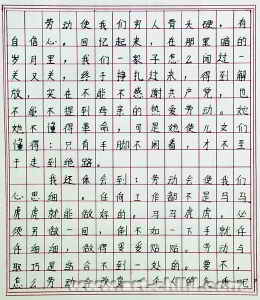 劳动使我们穷人骨头硬,有
自信心。回忆起来,在那黑暗的
岁月里,我们一家子怎么闯过一
关又一关,终于挣扎过来,得到解
放,实在不能不感谢共产党,也
不能不提到母亲的热爱劳动。她
她不懂得革命,可是她使儿女们
懂得:只有手脚不闲着,才不至
于走到绝路。
我还体会到:劳动会使我们
心思细。任何工作都不是马马
虎虎就能做好的。马马虎虎,必
须另做一回,倒不如一下手就仔
仔细细,做得妥妥贴贴。劳动与
取巧是结合不到一处的。要不,
怎么劳动会改变人的气质呢